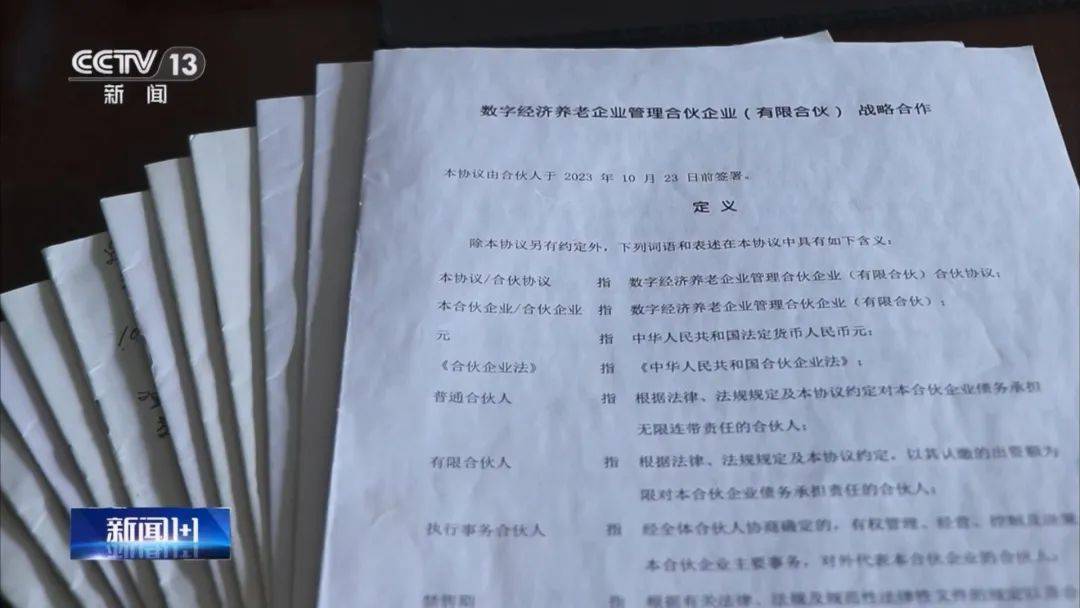 CCTV 13
新闻
数字经济养老企业管理合伙企业（有限合伙） 战略合作
本协议由合伙人于 2023 年 10 月 23 日前签署。
定义
除本协议另有约定外，下列词语和表述在本协议中具有如下含义：
本协议/合伙协议 指 数字经济养老企业管理合伙企业（有限合伙）合伙协议；
本合伙企业/合伙企业 指 数字经济养老企业管理合伙企业（有限合伙）；
元 指 中华人民共和国法定货币人民币元；
《合伙企业法》 指 《中华人民共和国合伙企业法》；
普通合伙人 指 根据法律、法规规定及本协议约定对本合伙企业债务承担
无限连带责任的合伙人；
有限合伙人 指 根据法律、法规规定及本协议约定，以其认缴的出资额为
限对本合伙企业债务承担责任的合伙人；
执行事务合伙人 指 经全体合伙人协商确定的，有权管理、经营、控制及决策
本合伙企业主要事务，对外代表本合伙企业的合伙人；
指 根据有关法律、法规及规范性法律性文件的规定以及合
新闻1+1